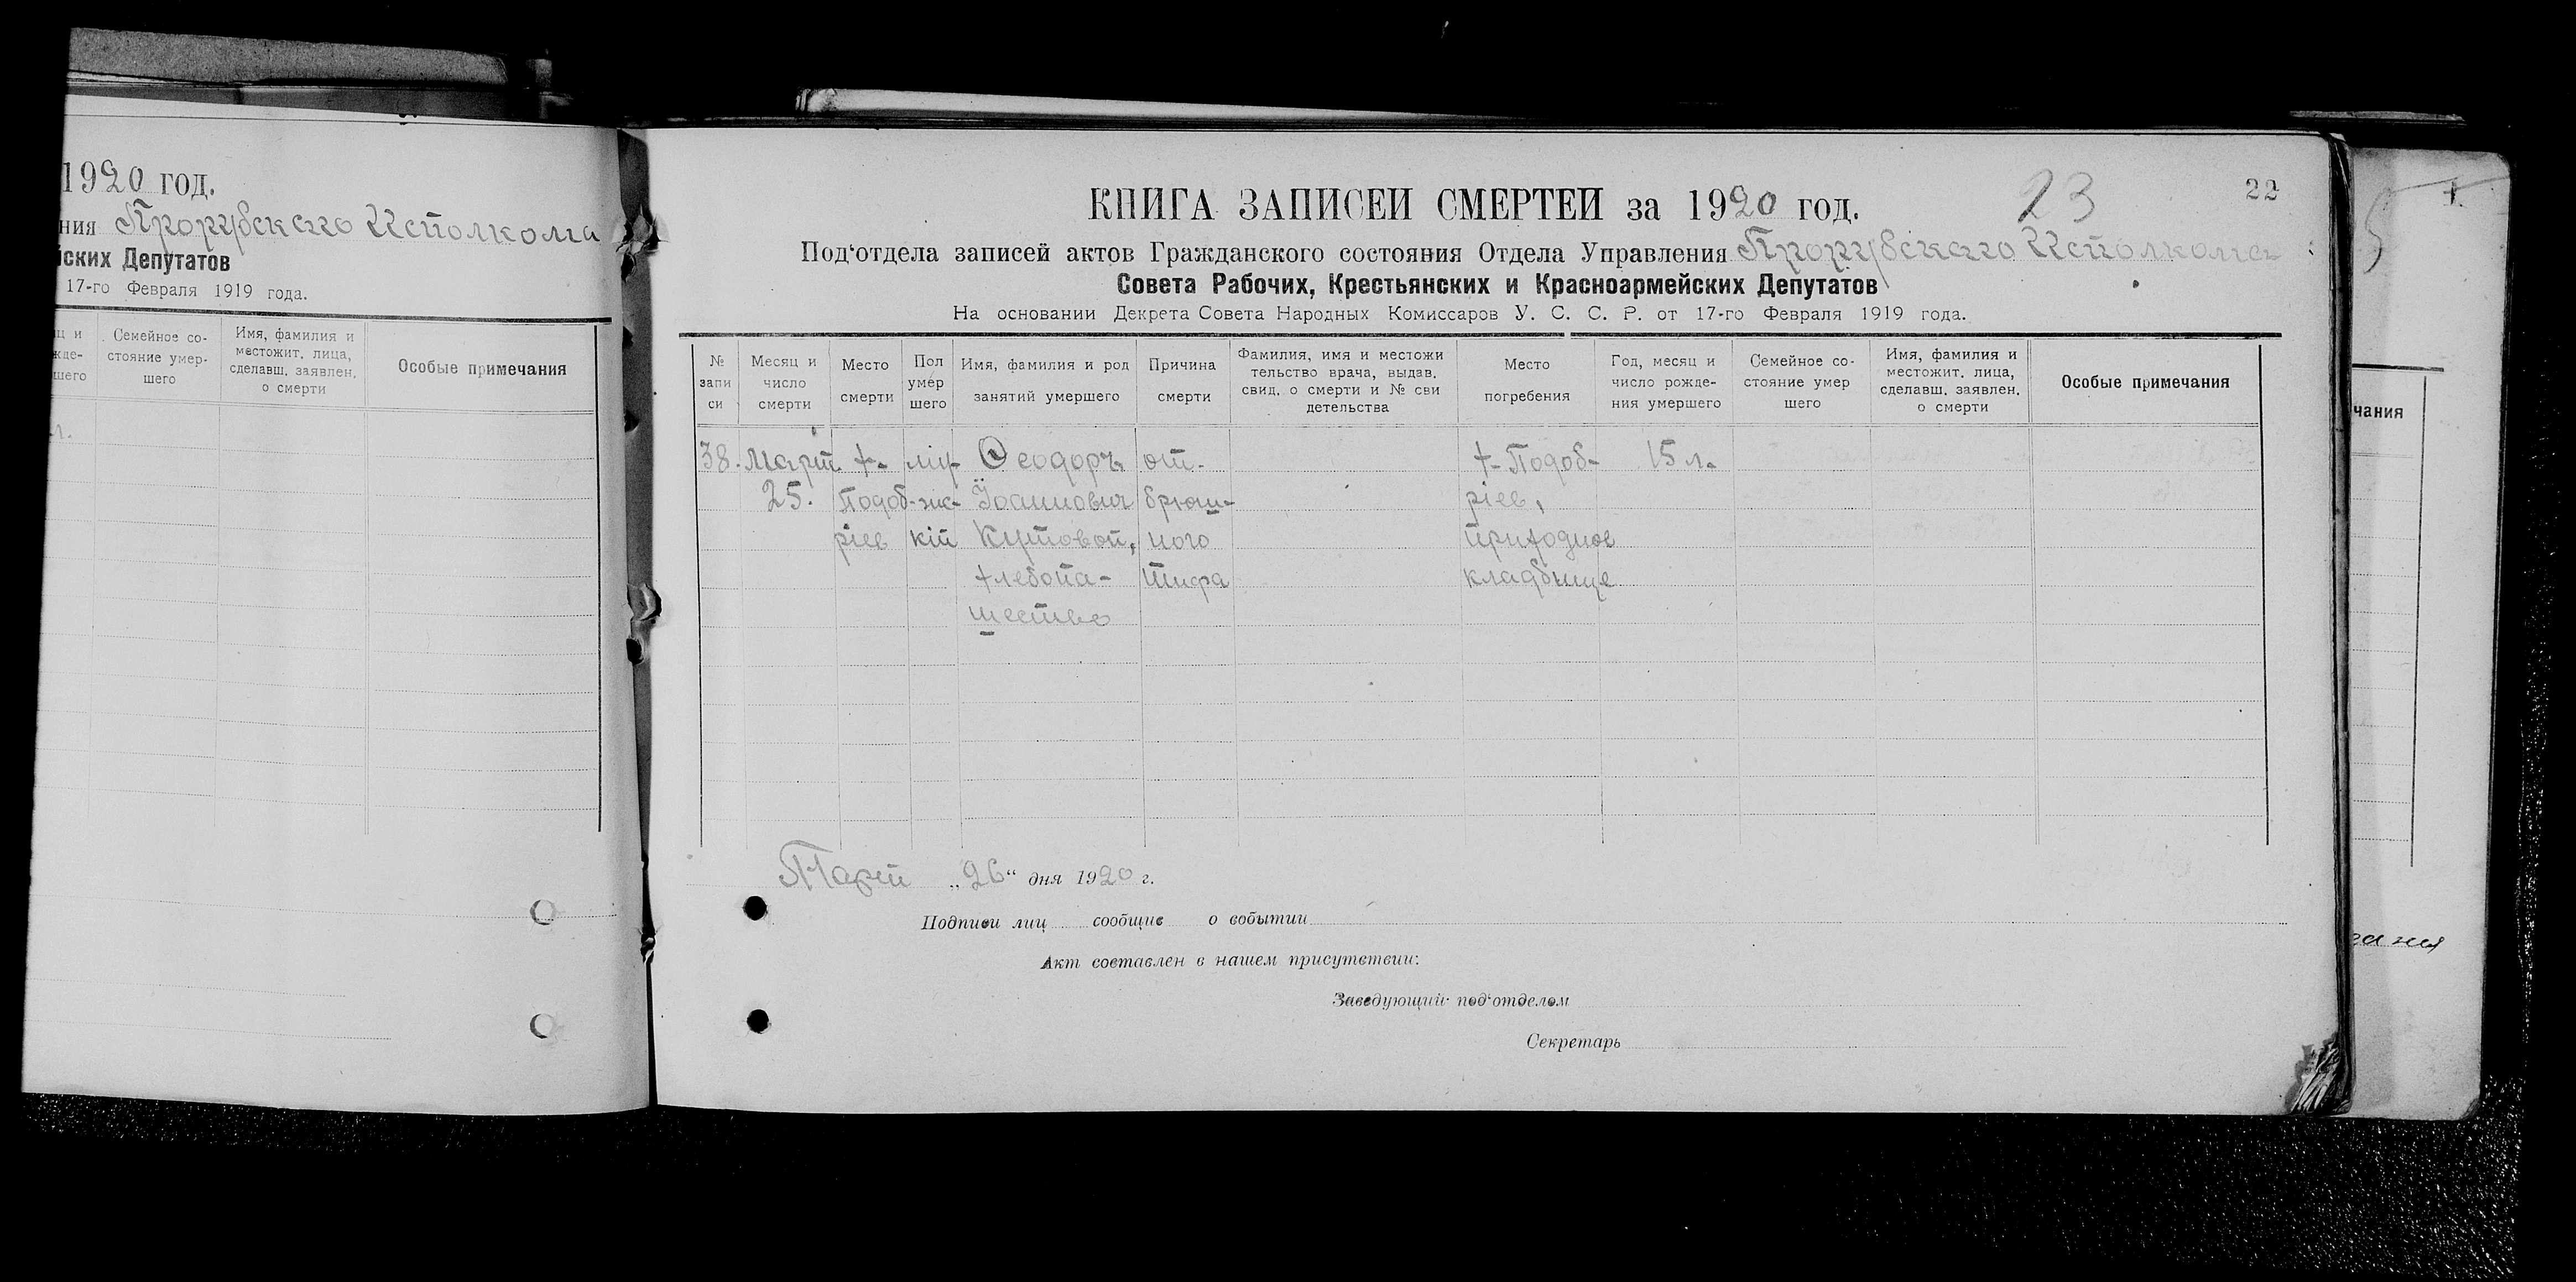 1920 год.
ния Прорубскаго Исполкома
йских Депутатов
17-го Февраля 1919 года.
Семейное со-
стояние умер-
шего
Имя, фамилия и
местожит. лица,
сделавш. заявлен.
о смерти
Особые примечания
23
22
КНИГА ЗАПИСЕЙ СМЕРТЕЙ за 1920 год.
Под‘отдела записей актов Гражданского состояния Отдела Управления Прорубскаго Исполкома
Совета Рабочих, Крестьянских и Красноармейских Депутатов
На основании Декрета Совета Народных Комиссаров У. С. С. Р. от 17-го Февраля 1919 года.
№
запи
си
Месяц и
число
смерти
Место
смерти
Пол
умер
шего
Имя, фамилия и род
занятий умершего
Причина
смерти
Фамилия, имя и местожи
тельство врача, выдав.
свид. о смерти и № сви
детельства
Место
погребения
Год, месяц и
число рожде-
ния умершего
Семейное со-
стояние умер
шего
Имя, фамилия и
местожит. лица,
сделавш. заявлен.
о смерти
Особые примечания
38.
Март
25.
х-
Подоб-
ріев
муж-
кій
Ѳеодоръ
Іоанновичъ
Кутовой,
хлебопа-
шество
от-
брюш-
ного
тифа
х-Подоб-
ріев,
приходное
кладбище
15 л.
Март „26“ дня 1920 г.
Подписи лиц сообщив о событии
Акт составлен в нашем присутствии:
Заведующий под‘отделом
Секретарь
чания